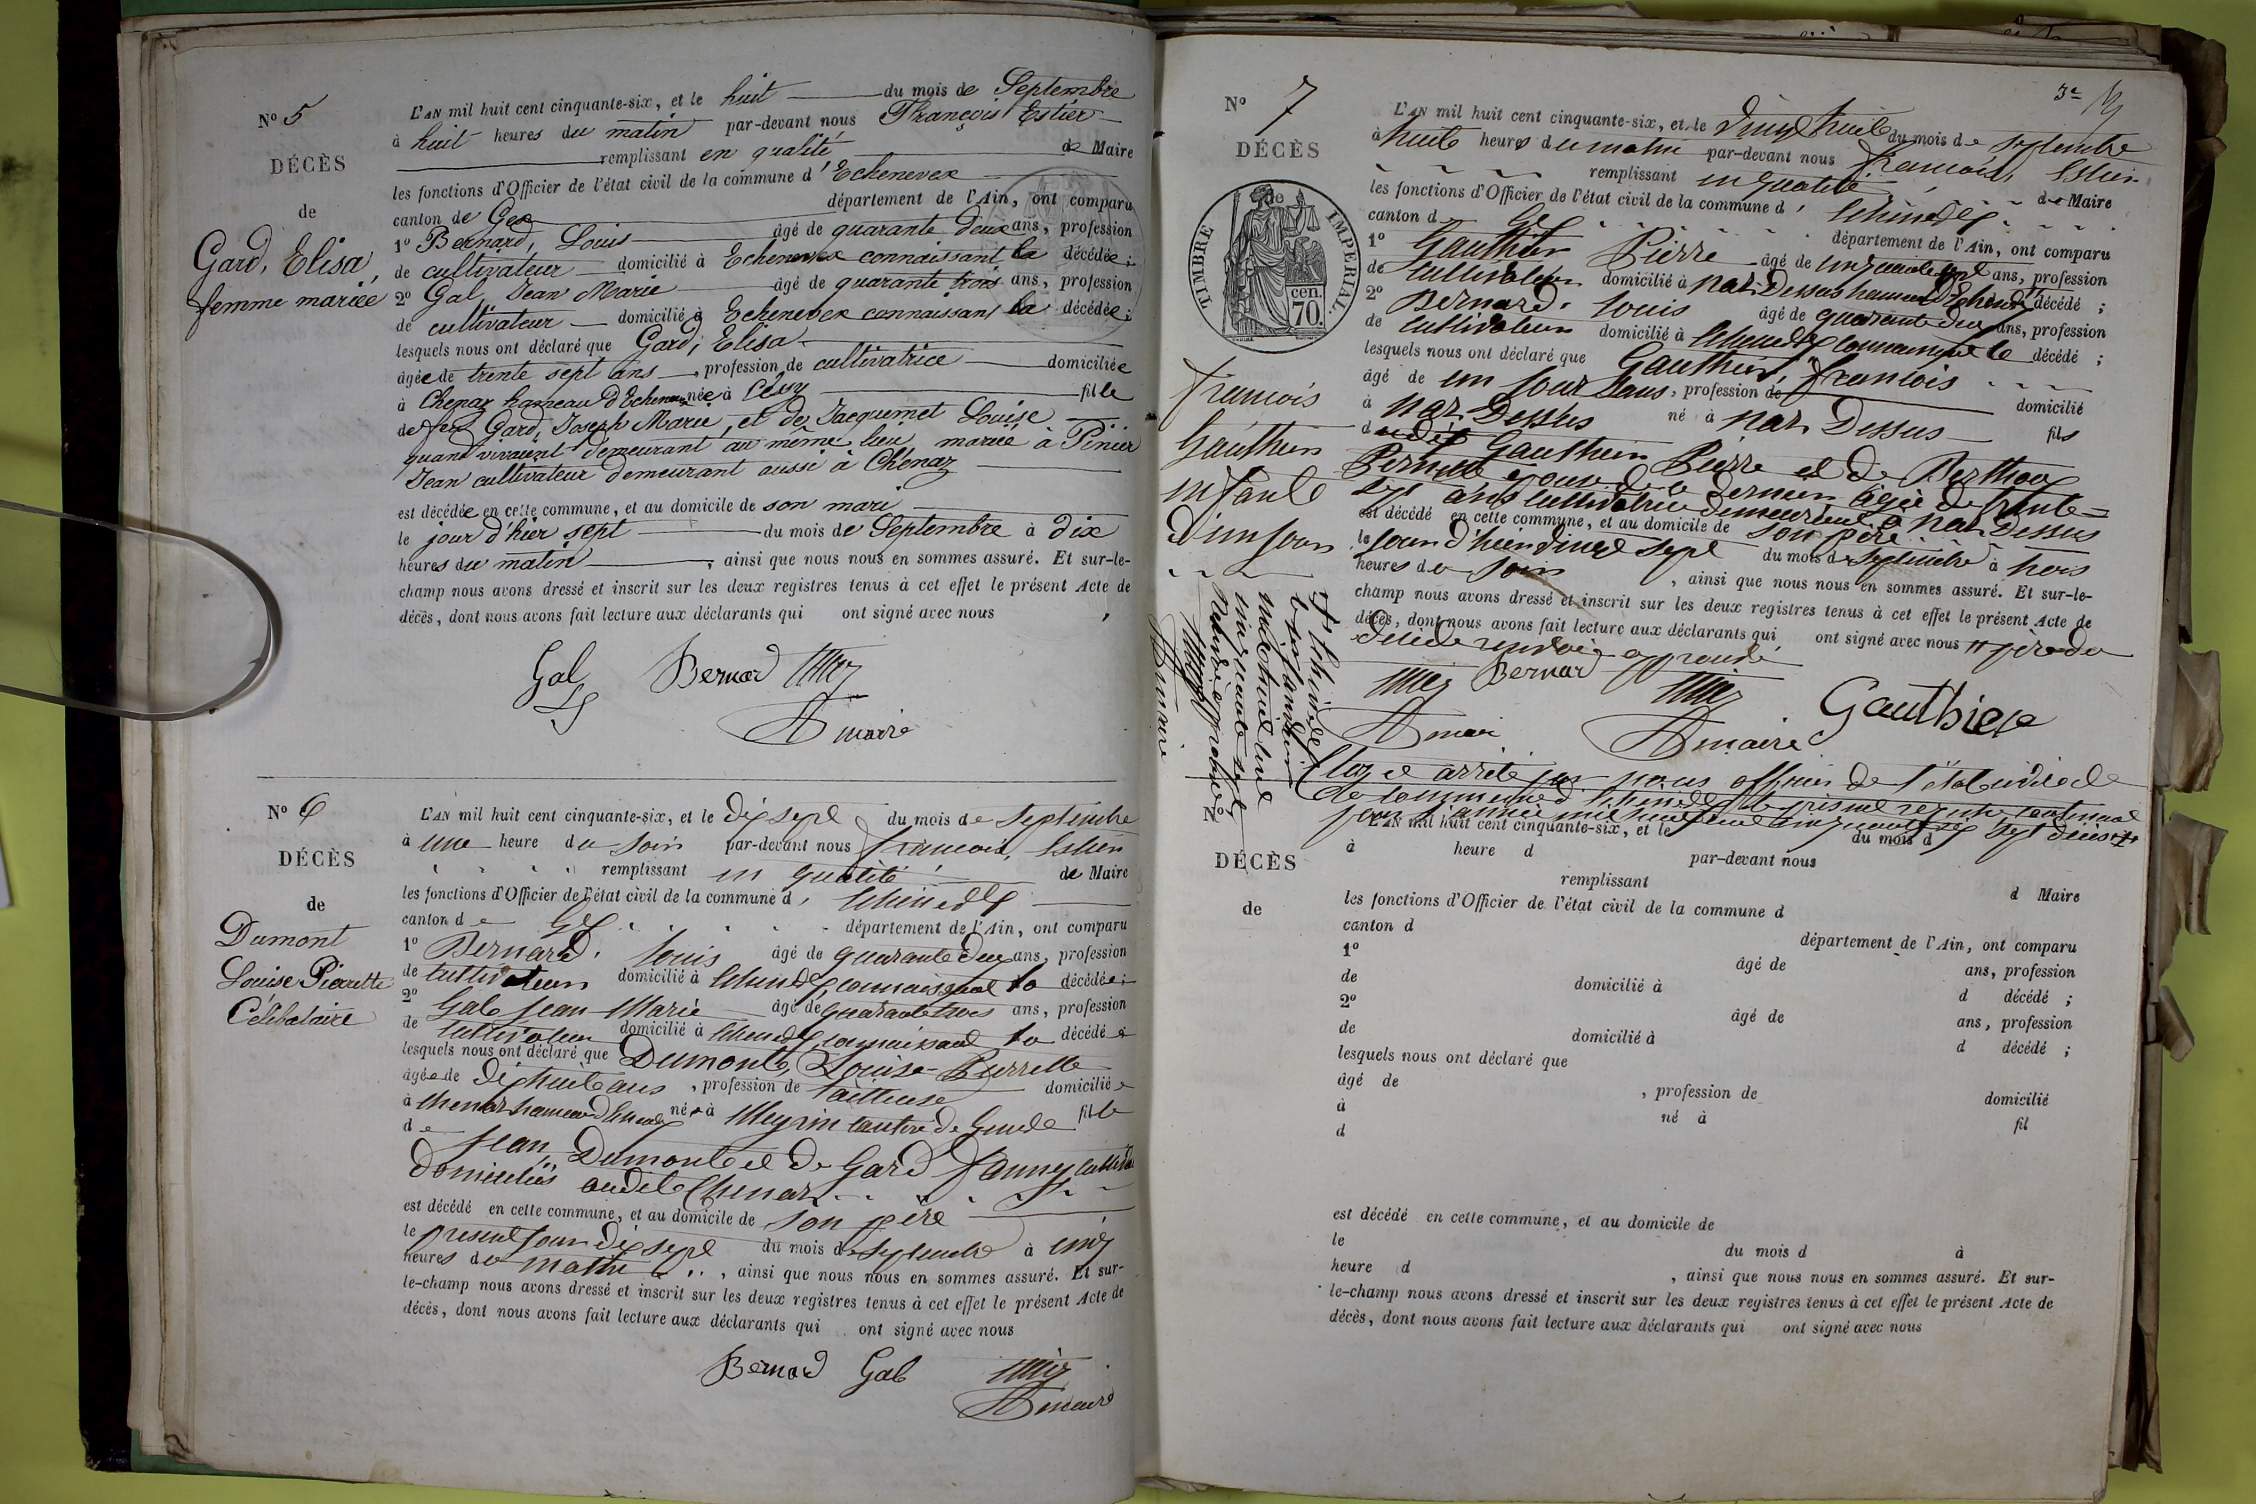 No 5
DÉCÈS
de
Gard, Elisa,
femme mariée
L'AN mil huit cent cinquante-six, et le huit du mois de Septembre
à huit heures du matin par-devant nous François Estier
remplissant en qualité de Maire
les fonctions d'Officier de l'état civil de la commune d'Echenevex
canton de Gex département de l'Ain, ont comparu
1o Bernard, Louis âgé de quarante deux ans, profession
de cultivateur domicilié à Echenevex connaissant la décédée;
2o Gal, Jean Marie âgé de quarante trois ans, profession
de cultivateur domicilié à Echenevex connaissant la décédée;
lesquels nous ont déclaré que Gard, Elisa
âgée de trente sept ans, profession de cultivatrice domiciliée
à Chenaz hameau d'Echenevex née à Cessy fille
de feu Gard, Joseph Marie, et de Jacquemet Louise
quand vivaient demeurant au même lieu, mariée à Pinier
Jean cultivateur demeurant aussi à Chénaz
est décédée en cette commune, et au domicile de son mari
le jour d'hier sept du mois de Septembre à dix
heures du matin, ainsi que nous nous en sommes assuré. Et sur-le-
champ nous avons dressé et inscrit sur les deux registres tenus à cet effet le présent Acte de
décès, dont nous avons fait lecture aux déclarants qui ont signé avec nous,
Gal Bernard
maire
No 6
DÉCÈS
de
Dumont
Louise Pierrette
Célibataire
L'AN mil huit cent cinquante-six, et le dix sept du mois de septembre
à une heure du soir par-devant nous francois, Estier
remplissant en qualité de Maire
les fonctions d'Officier de l'état civil de la commune d'Echenevex
canton de Gex département de l'Ain, ont comparu
1o Bernard, louis âgé de quarante deux ans, profession
de cultivateur domicilié à Echenevex, connaissant la décédée;
2o Gal jean Marie âgé de quarante trois ans, profession
de cultivateur domicilié à Echenevex connaissant la décédée
lesquels nous ont déclaré que Dumont, Louise-Pierrette
âgée de dix huit ans, profession de tailleuse domiciliée
à Chenaz hameau d'Echenevex née à Meyrin canton de Genève fille
de jean, Dumont et de Gard fanny
domiciliés audit Chenaz
est décédé en cette commune, et au domicile de son père
le présent jour dix sept du mois de septembre à cinq
heures du matin, ainsi que nous nous en sommes assuré. Et sur-
le-champ nous avons dressé et inscrit sur les deux registres tenus à cet effet le présent Acte de
décès, dont nous avons fait lecture aux déclarants qui ont signé avec nous
Bernard Gal
maire
No 7
DÉCÈS
de
TIMBRE IMPERIAL
70 cen.
francois
Gauthier
enfant
d'un jour
L'AN mil huit cent cinquante-six, et le vingt huit du mois de septembre
à huit heures du matin par-devant nous francois, Estier
remplissant en qualité de Maire
les fonctions d'Officier de l'état civil de la commune d'Echenevex
canton d Gex département de l'Ain, ont comparu
1o Gauthier Pierre âgé de ans, profession
de cultivateur domicilié à naz-Dessus hameau d'Echenevex décédé;
2o Bernard, louis âgé de quarante deux ans, profession
de cultivateur domicilié à Echenevex connaissant le décédé;
lesquels nous ont déclaré que Gauthier, françois
âgé de un jour, profession de domicilié
à naz-Dessus né à naz Dessus fils
d Gauthier Pierre et de Berthoux
Pernette épouse de ce dernier âgée de trente
sept ans cultivatrice demeurant à naz Dessus
est décédé en cette commune, et au domicile de son père
le jour d'hier vingt sept du mois de septembre à trois
heures du soir, ainsi que nous nous en sommes assuré. Et sur-le-
champ nous avons dressé et inscrit sur les deux registres tenus à cet effet le présent Acte de
décès, dont nous avons fait lecture aux déclarants qui ont signé avec nous
Bernard
Gauthier
maire
maire
Clos et arrêté par nous officier de l'état civil de
la commune d'Echenevex le présent registre contenant
pour l'année mil huit cent cinquante six sept décès
No
DÉCÈS
de
L'AN mil huit cent cinquante-six, et le du mois d
à heure d par-devant nous
remplissant d Maire
les fonctions d'Officier de l'état civil de la commune d
canton d département de l'Ain, ont comparu
1o âgé de ans, profession
de domicilié à d décédé;
2o âgé de ans, profession
de domicilié à d décédé;
lesquels nous ont déclaré que
âgé de, profession de domicilié
à né à fil
d
est décédé en cette commune, et au domicile de
le du mois d à
heure d, ainsi que nous nous en sommes assuré. Et sur-
le-champ nous avons dressé et inscrit sur les deux registres tenus à cet effet le présent Acte de
décès, dont nous avons fait lecture aux déclarants qui ont signé avec nous